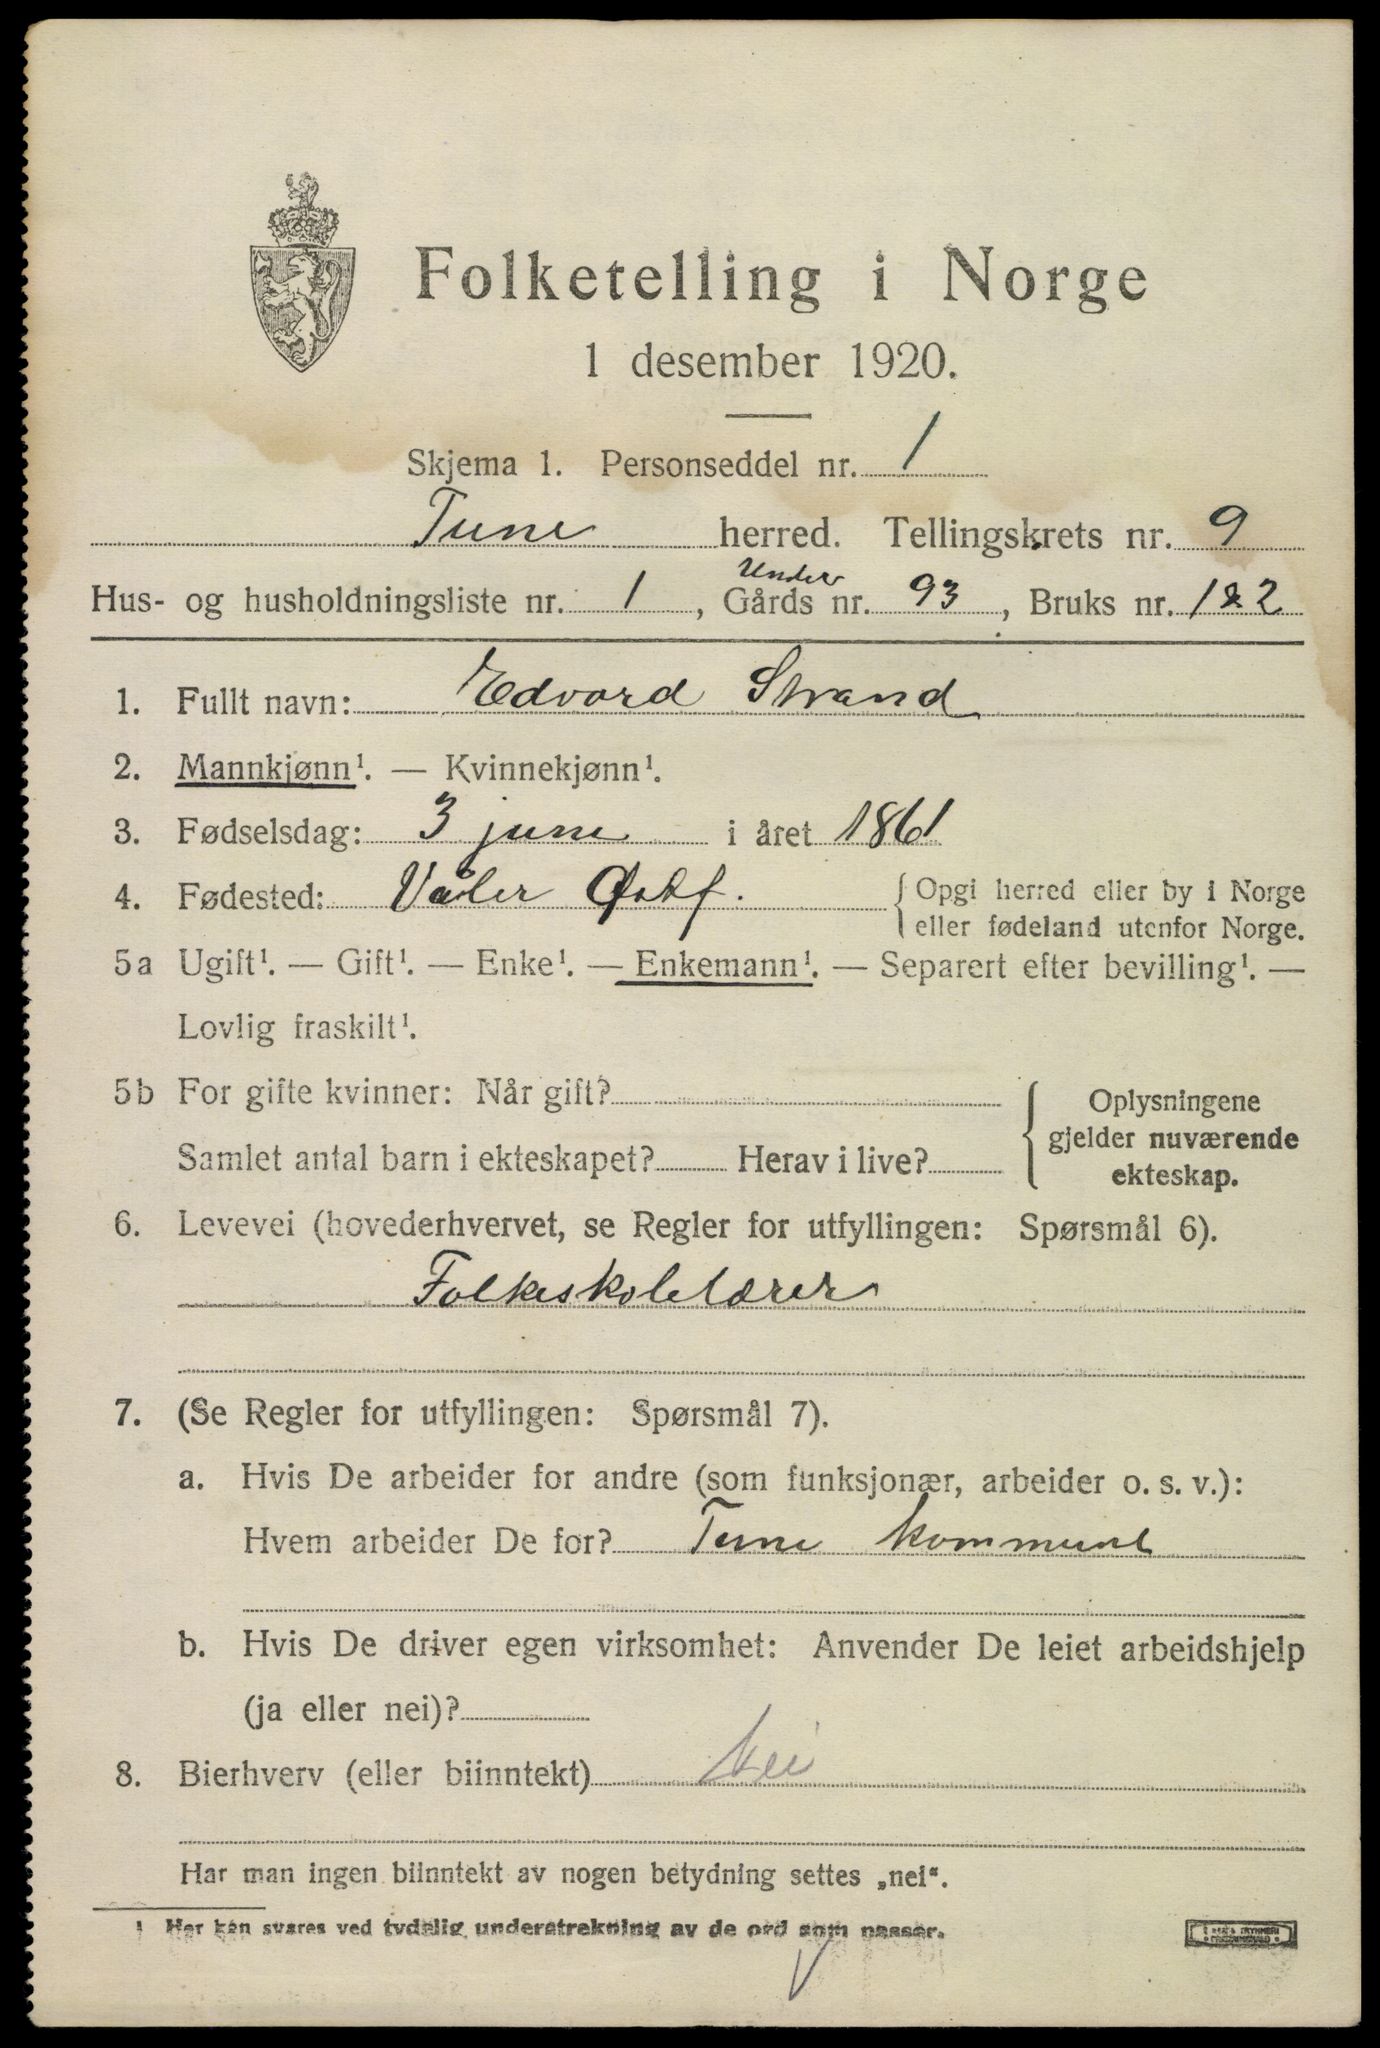 Folketelling i Norge
1 desember 1920.
Skjema 1. Personseddel nr. 1
Tune herred. Tellingskrets nr. 9
Under
Hus- og husholdningsliste nr. 1, Gårds nr. 93, Bruks nr. 1&2
1. Fullt navn: Edvard Strand
2. Mannkjønn¹. — Kvinnekjønn¹.
3. Fødselsdag: 3 juni i året 1861
4. Fødested: Våler Østf. { Opgi herred eller by i Norge
eller fødeland utenfor Norge.
5a Ugift¹. — Gift¹. — Enke¹. — Enkemann¹. — Separert efter bevilling¹. —
Lovlig fraskilt¹.
5b For gifte kvinner: Når gift?
Samlet antal barn i ekteskapet? Herav i live?
Oplysningene
gjelder nuværende
ekteskap.
6. Levevei (hovederhvervet, se Regler for utfyllingen: Spørsmål 6).
Folkeskolelærer
7. (Se Regler for utfyllingen: Spørsmål 7).
a. Hvis De arbeider for andre (som funksjonær, arbeider o. s. v.):
Hvem arbeider De for? Tune kommune
b. Hvis De driver egen virksomhet: Anvender De leiet arbeidshjelp
(ja eller nei)?
8. Bierhverv (eller biinntekt) Nei
Har man ingen biinntekt av nogen betydning settes „nei“.
¹ Her kan svares ved tydelig understrekning av de ord som passer.